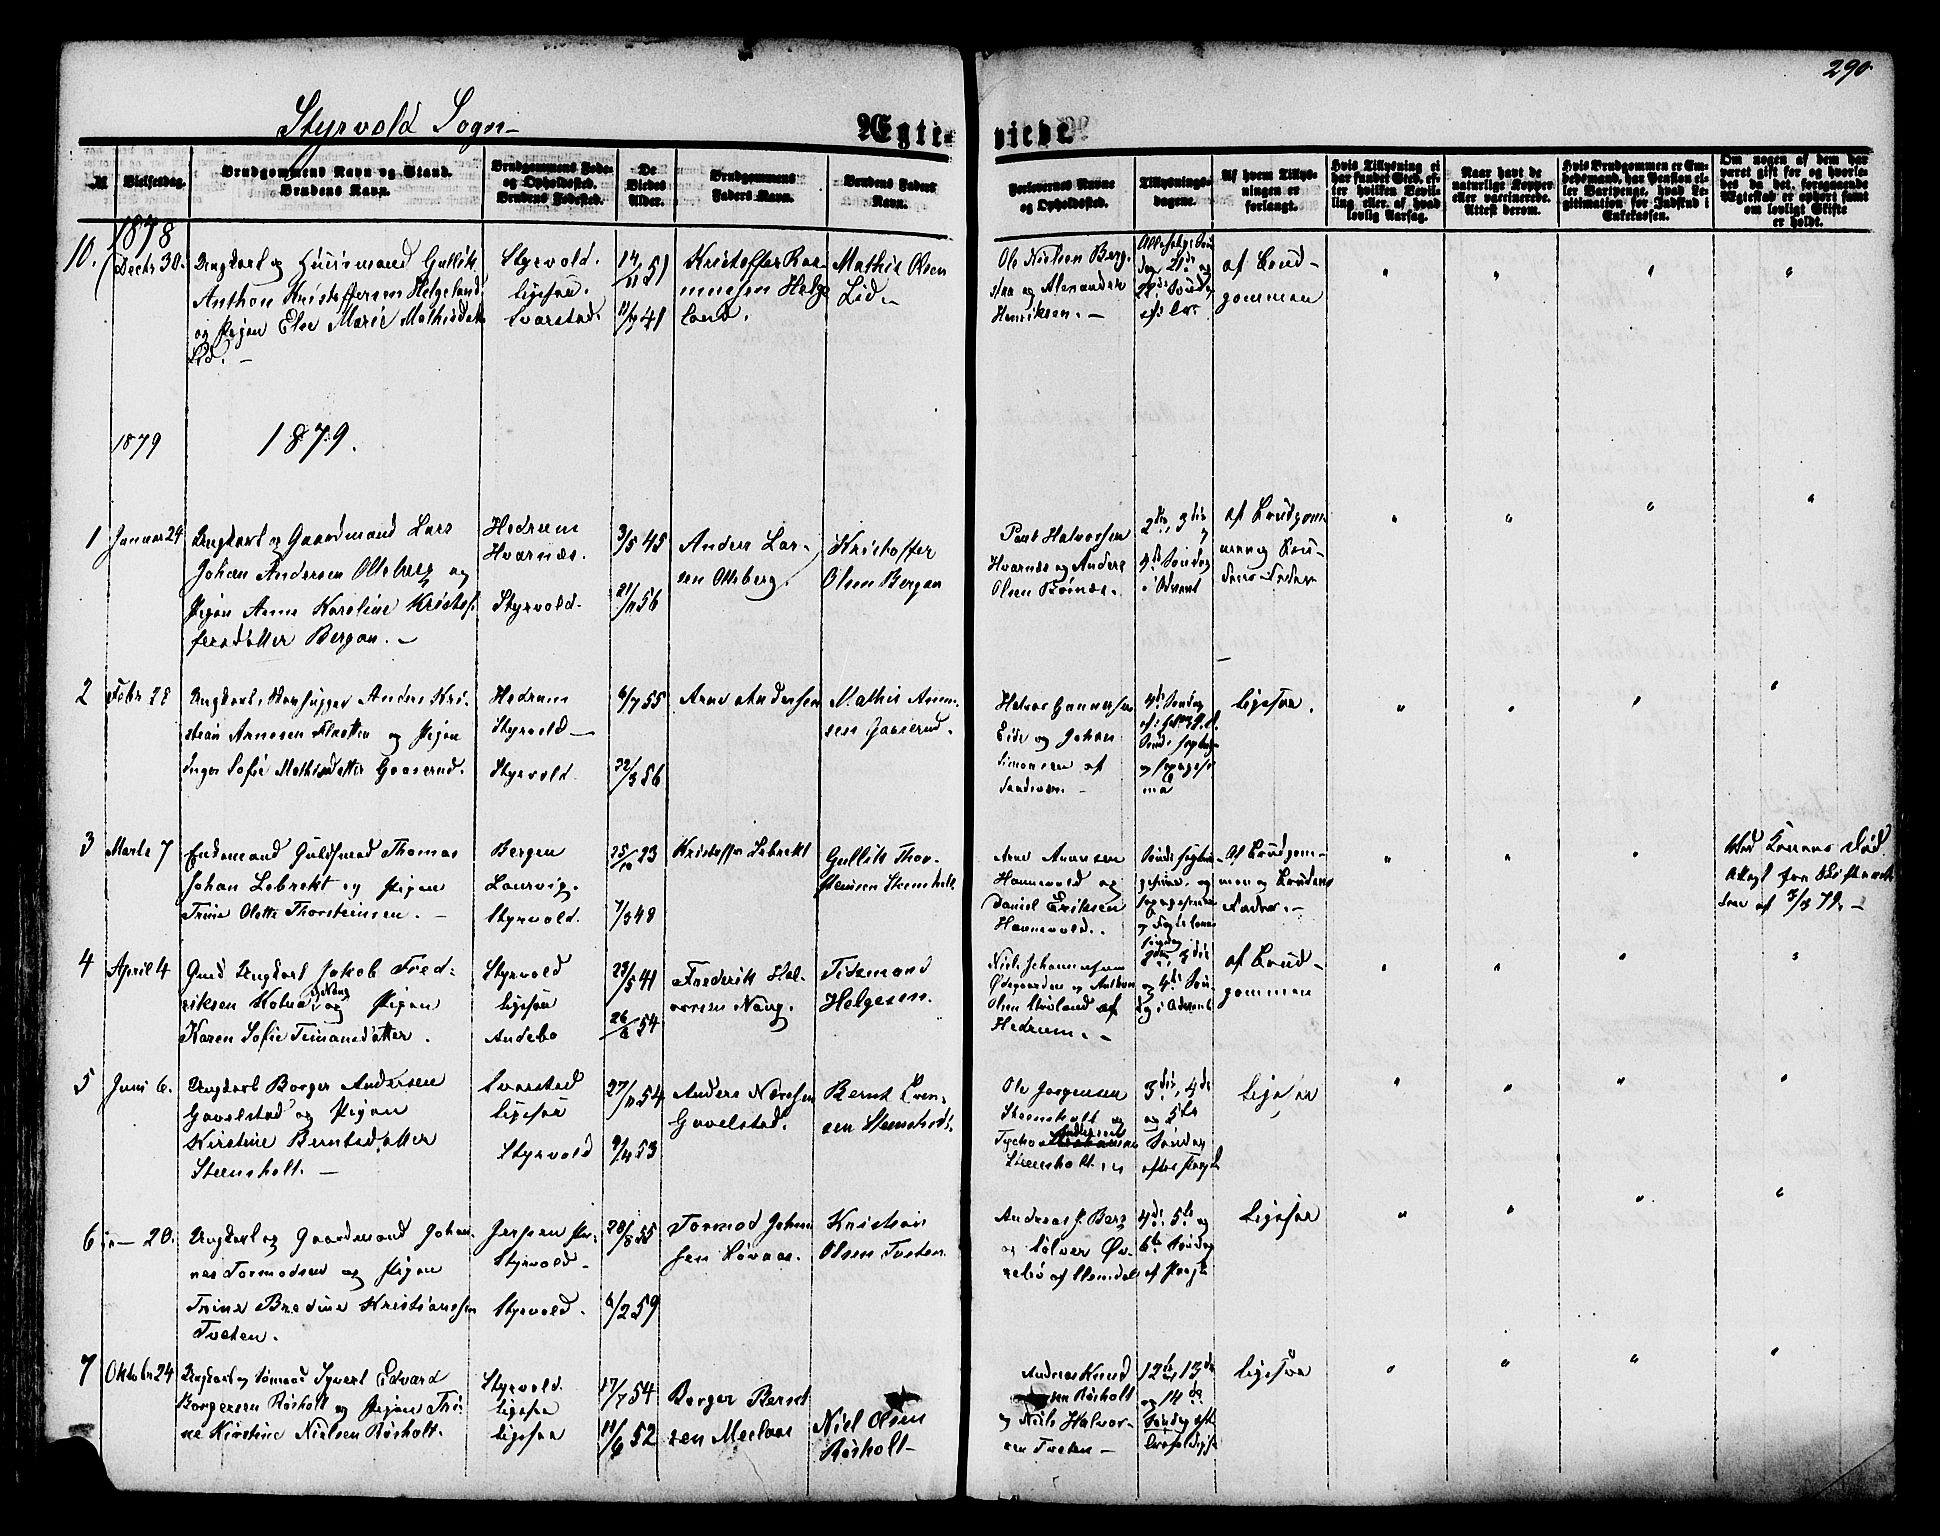 290
Styrvold Sogn
Ægte-
viede
№
Vielsesdag.
Brudgommens Navn og Stand.
Brudens Navn.
Brudgommens Føde-
og Opholdssted.
Brudens Fødested.
De
Viedes
Alder.
Brudgommens
Faders Navn.
Brudens Faders
Navn.
Forlovernes Navne
og Opholdssted.
Tillysnings-
dagene.
Af hvem Tillys-
ningen er
forlangt.
Hvis Tillysning ei
har fundet Sted, ef-
ter hvilken Bevil-
ling eller af hvad
lovlig Aarsag.
Naar havt de
naturlige Kopper
eller vaccinerede.
Attest derom.
Hvis Brudgommen er Em-
bedsmand, har Pension el-
ler Vartpenge, hvad Le-
gitimation for Indskud i
Enkekassen.
Om nogen af dem har
været gift før og hvorle-
des da det foregaaende
Ægteskab er ophørt samt
om lovligt Skifte
er holdt.
1878
10.
Decbr 30.
Ungkarl og Huusmand Gullik
Anthon Kristoffersen Helgeland
og Pigen Else Marie Mathisdatter
Lid. –
Styrvold.
ligesaa.
Svarstad.
14/11 51
11/9 41
Kristoffer Ras-
mussen Helge
land.
Mathis Olsen
Lid.
Ole Nielsen Berg-
og Alexander
Henriksen. –
af Brud-
gommen
1879
1879.
1
Januar 24
Ungkarl og Gaardmand Lars
Johan Andersen Olleberg og
Pigen Anne Karoline Kristof-
fersdatter Bergan. –
Hedrum
Hvarnæs.
Styrvold.
3/5 45
21/11 56
Anders Lar-
sen Olleberg.
Kristoffer
Olsen Bergan
Paul Halvorsen
Hvarnæs og Anders
Olsen
2den, 3die
4de Søndag
i Advent
af Brudgom-
men og Bru-
dens Fader
2
Febr 28
Ungkarl, Anders Kri-
stian Arnesen og Pigen
Inger Sofie Mathisdatter Gaaserud.
Hedrum
Styrvold –
Styrvold.
6/7 55
22/3 56
Arne Andersen
Mathis
sen Gaaserud.
Halvor Gunnersen
Eide og Johan
Simonsen af
Sandvær. –
4de Søndag
ligesaa.
3
Marts 7
Enkemand Guldsmed Thomas
Johan Lebrekt og Pigen
Trine Olette Thorsteinsen. –
Bergen
Laurvig.
Styrvold.
25/12 23
7/3 48
Kristoffer Lebrekt
Gullik Thor-
steinsen Steensholt.
Arne
Hannevold og
Daniel Eriksen
Hannevold.
Af Brudgom-
men og Brudens
Fader. –
Ved Konens Død.
Attest fra Skifteret-
ten af 3/3 79. –
4
April 4
Ungkarl Jakob Fred-
riksen og Pigen
Karen Sofie Timansdatter.
Styrvold
ligesaa
Andebo
23/5 41
26/6 54
Frederik Hal-
vorsen Nang.
Tidemand
Helgesen.
Niels Johannesen
Ødegaarden og Anthon
Olsen af
Hedrum. –
2den, 3die
og 4de Søn-
dag i Advent
af Brud-
gommen
5
Juni 6.
Ungkarl Borger Andersen
Gavelstad og Pigen
Kirstine Berntsdatter
Steensholt. –
Svarstad
ligesaa
Styrvold
27/11 54
9/4 53
Anders
Gavelstad.
Bernt Even-
sen Steensholt.
Ole Jørgensen
Steensholt og
Steensholt.
3die, 4de
og 5te
Søndag
efter Paaske
Ligesaa
6
" – 20.
Ungkarl og Gaardmand Johan-
nes Tormodsen og Pigen
Trine Bredine Kristiansen
Tveten.
Styrvold.
Styrvold.
28/8 55
6/2 59
Tormod Johan
sen
Kristian
Olsen Tveten
Andreas J. Berg
og Sølver Øv-
rebø af Slemdal
4de, 5te og
6te Søndag
ef Paaske
Ligesaa
7
Oktober 24
Ungkarl og Sømand Syvert Edvard
Borgersen Røsholt og Pigen Thi-
ne Kirstine Nielsen Røsholt.
Styrvold.
ligesaa
ligesaa
17/7 54
11/6 52
Borger Bernt
sen Meelaas
Niels Olsen
Røsholt
Andreas Knud
sen Røsholt
og Niels Halvor-
sen Tveten –
12te, 13de
og 14de
Søndag eft
ligesaa